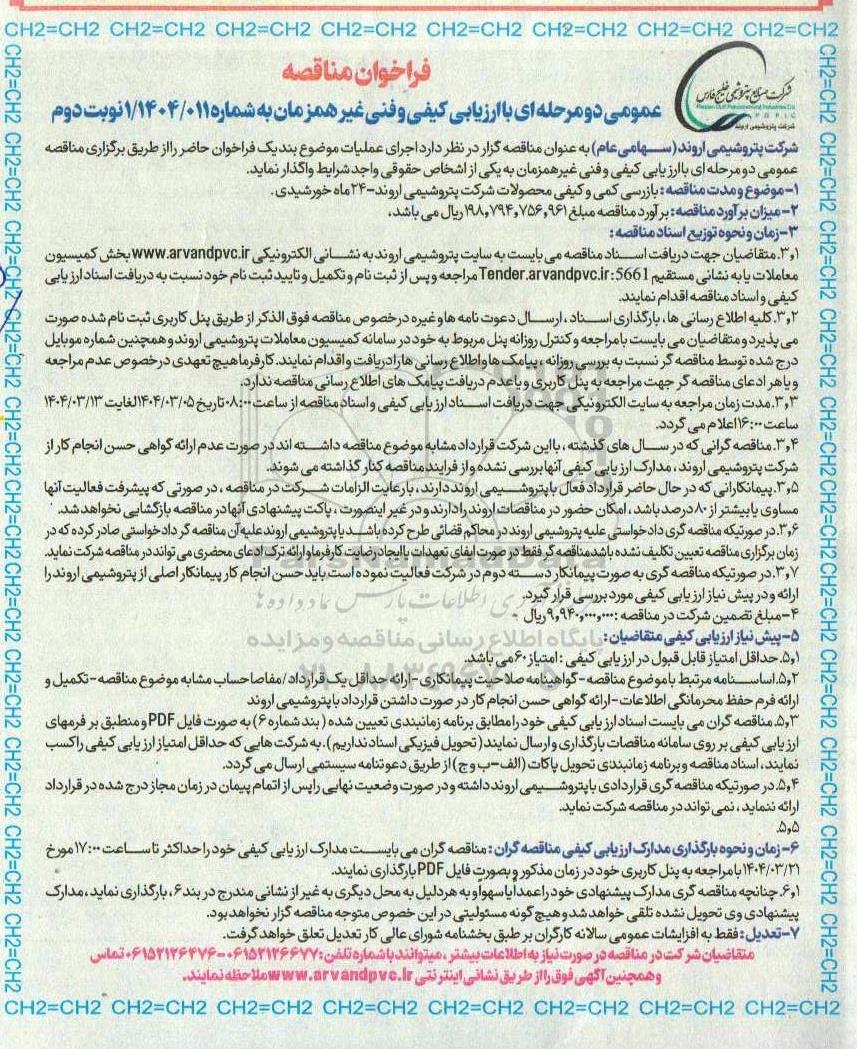 CH2=CH2 CH2=CH2 CH2=CH2 CH2=CH2 CH2=CH2 CH2=CH2 CH2=CH2 CH2=CH2
شرکت صنایع پتروشیمی خلیج فارس
Persian Gulf Petrochemical Industries Co
P G P I C
شرکت پتروشیمی اروند
فراخوان مناقصه
عمومی دو مرحله ای با ارزیابی کیفی و فنی غیر همزمان به شماره ۱/۱۴۰۴/۰۱۱ نوبت دوم
شرکت پتروشیمی اروند (سهامی عام) به عنوان مناقصه گزار در نظر دارد اجرای عملیات موضوع بند یک فراخوان حاضر را از طریق برگزاری مناقصه
عمومی دو مرحله ای با ارزیابی کیفی و فنی غیر همزمان به یکی از اشخاص حقوقی واجد شرایط واگذار نماید.
۱- موضوع و مدت مناقصه: بازرسی کمی و کیفی محصولات شرکت پتروشیمی اروند-۲۴ ماه خورشیدی.
۲- میزان برآورد مناقصه: برآورد مناقصه مبلغ ۱۹۸,۷۹۴,۷۵۶,۹۶۱ ریال می باشد،
۳- زمان و نحوه توزیع اسناد مناقصه:
۳٫۱. متقاضیان جهت دریافت اسناد مناقصه می بایست به سایت پتروشیمی اروند به نشانی الکترونیکی www.arvandpvc.ir بخش کمیسیون
معاملات یا به نشانی مستقیم Tender.arvandpvc.ir:5661 مراجعه و پس از ثبت نام و تکمیل و تایید ثبت نام خود نسبت به دریافت اسناد ارزیابی
کیفی و اسناد مناقصه اقدام نمایند.
۳٫۲. کلیه اطلاع رسانی ها، بارگذاری اسناد، ارسال دعوت نامه ها و غیره در خصوص مناقصه فوق الذکر از طریق پنل کاربری ثبت نام شده صورت
می پذیرد و متقاضیان می بایست با مراجعه و کنترل روزانه پنل مربوط به خود در سامانه کمیسیون معاملات پتروشیمی اروند و همچنین شماره موبایل
درج شده توسط مناقصه گر نسبت به بررسی روزانه، پیامک ها و اطلاع رسانی ها را دریافت و اقدام نمایند. کارفرما هیچ تعهدی در خصوص عدم مراجعه
و یا هر ادعای مناقصه گر جهت مراجعه به پنل کاربری و یا عدم دریافت پیامک های اطلاع رسانی مناقصه ندارد.
۳٫۳. مدت زمان مراجعه به سایت الکترونیکی جهت دریافت اسناد ارزیابی کیفی و اسناد مناقصه از ساعت ۰۸:۰۰ تاریخ ۱۴۰۴/۰۳/۰۵ لغایت ۱۴۰۴/۰۳/۱۳
ساعت ۱۶:۰۰ اعلام می گردد.
۳٫۴. مناقصه گرانی که در سال های گذشته، با این شرکت قرارداد مشابه موضوع مناقصه داشته اند در صورت عدم ارائه گواهی حسن انجام کار از
شرکت پتروشیمی اروند، مدارک ارزیابی کیفی آنها بررسی نشده و از فرایند مناقصه کنار گذاشته می شوند.
۳٫۵. پیمانکارانی که در حال حاضر قرارداد فعال با پتروشیمی اروند دارند، با رعایت الزامات شرکت در مناقصه، در صورتی که پیشرفت فعالیت آنها
مساوی یا بیشتر از ۸۰ درصد باشد، امکان حضور در مناقصات اروند را دارند و در غیر اینصورت، پاکت پیشنهادی آنها در مناقصه بازگشایی نخواهد شد.
۳٫۶. در صورتیکه مناقصه گری دادخواستی علیه پتروشیمی اروند در محاکم قضائی طرح کرده باشد یا پتروشیمی اروند علیه آن مناقصه گر دادخواستی صادر کرده که در
زمان برگزاری مناقصه تعیین تکلیف نشده باشد مناقصه گر فقط در صورت ایفای تعهدات یا ایجاد رضایت کارفرما و ارائه ترک ادعای محضری می تواند در مناقصه شرکت نماید.
۳٫۷. در صورتیکه مناقصه گری به صورت پیمانکار دسته دوم در شرکت فعالیت نموده است باید حسن انجام کار پیمانکار اصلی از پتروشیمی اروند را
ارائه و در پیش نیاز ارزیابی کیفی مورد بررسی قرار گیرد.
۴- مبلغ تضمین شرکت در مناقصه: ۹,۹۴۰,۰۰۰,۰۰۰ ریال
۵- پیش نیاز ارزیابی کیفی متقاضیان:
۵٫۱. حداقل امتیاز قابل قبول در ارزیابی کیفی: امتیاز ۶۰ می باشد.
۵٫۲. اساسنامه مرتبط با موضوع مناقصه-گواهینامه صلاحیت پیمانکاری-ارائه حداقل یک قرارداد/مفاصا حساب مشابه موضوع مناقصه-تکمیل و
ارائه فرم حفظ محرمانگی اطلاعات-ارائه گواهی حسن انجام کار در صورت داشتن قرارداد با پتروشیمی اروند
۵٫۳. مناقصه گران می بایست اسناد ارزیابی کیفی خود را مطابق برنامه زمانبندی تعیین شده (بند شماره ۶) به صورت فایل PDF و منطبق بر فرمهای
ارزیابی کیفی بر روی سامانه مناقصات بارگذاری و ارسال نمایند (تحویل فیزیکی اسناد نداریم). به شرکت هایی که حداقل امتیاز ارزیابی کیفی را کسب
نمایند، اسناد مناقصه و برنامه زمانبندی تحویل پاکات (الف-ب و ج) از طریق دعوتنامه سیستمی ارسال می گردد.
۵٫۴. در صورتیکه مناقصه گری قراردادی با پتروشیمی اروند داشته و در صورت وضعیت نهایی را پس از اتمام پیمان در زمان مجاز درج شده در قرارداد
ارائه ننماید، نمی تواند در مناقصه شرکت نماید.
۵٫۵.
۶- زمان و نحوه بارگذاری مدارک ارزیابی کیفی مناقصه گران: مناقصه گران می بایست مدارک ارزیابی کیفی خود را حداکثر تا ساعت ۱۷:۰۰ مورخ
۱۴۰۴/۰۳/۲۱ با مراجعه به پنل کاربری خود در زمان مذکور و بصورت فایل PDF بارگذاری نمایند.
۶٫۱. چنانچه مناقصه گری مدارک پیشنهادی خود را عمداً یا سهواً و به هر دلیل به محل دیگری به غیر از نشانی مندرج در بند ۶، بارگذاری نماید، مدارک
پیشنهادی وی تحویل نشده تلقی خواهد شد و هیچ گونه مسئولیتی در این خصوص متوجه مناقصه گزار نخواهد بود.
۷- تعدیل: فقط به افزایشات عمومی سالانه کارگران بر طبق بخشنامه شورای عالی کار تعدیل تعلق خواهد گرفت.
متقاضیان شرکت در مناقصه در صورت نیاز به اطلاعات بیشتر، میتوانند با شماره تلفن: ۰۶۱۵۲۱۲۶۶۷۷-۰۶۱۵۲۱۲۶۴۷۶ تماس
و همچنین آگهی فوق را از طریق نشانی اینترنتی www.arvandpvc.ir ملاحظه نمایند.
CH2=CH2 CH2=CH2 CH2=CH2 CH2=CH2 CH2=CH2 CH2=CH2 CH2=CH2 CH2=CH2